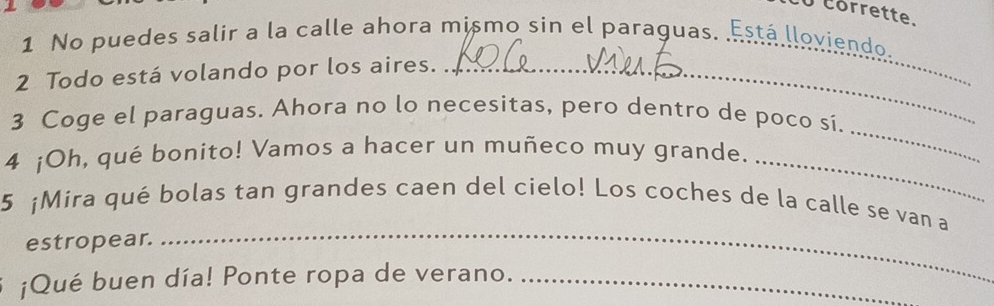 corrette.
1 No puedes salir a la calle ahora mismo sin el paraguas. Está lloviendo.
2 Todo está volando por los aires. viento
3 Coge el paraguas. Ahora no lo necesitas, pero dentro de poco sí.
4 ¡Oh, qué bonito! Vamos a hacer un muñeco muy grande.
5 ¡Mira qué bolas tan grandes caen del cielo! Los coches de la calle se van a
estropear.
¡Qué buen día! Ponte ropa de verano.